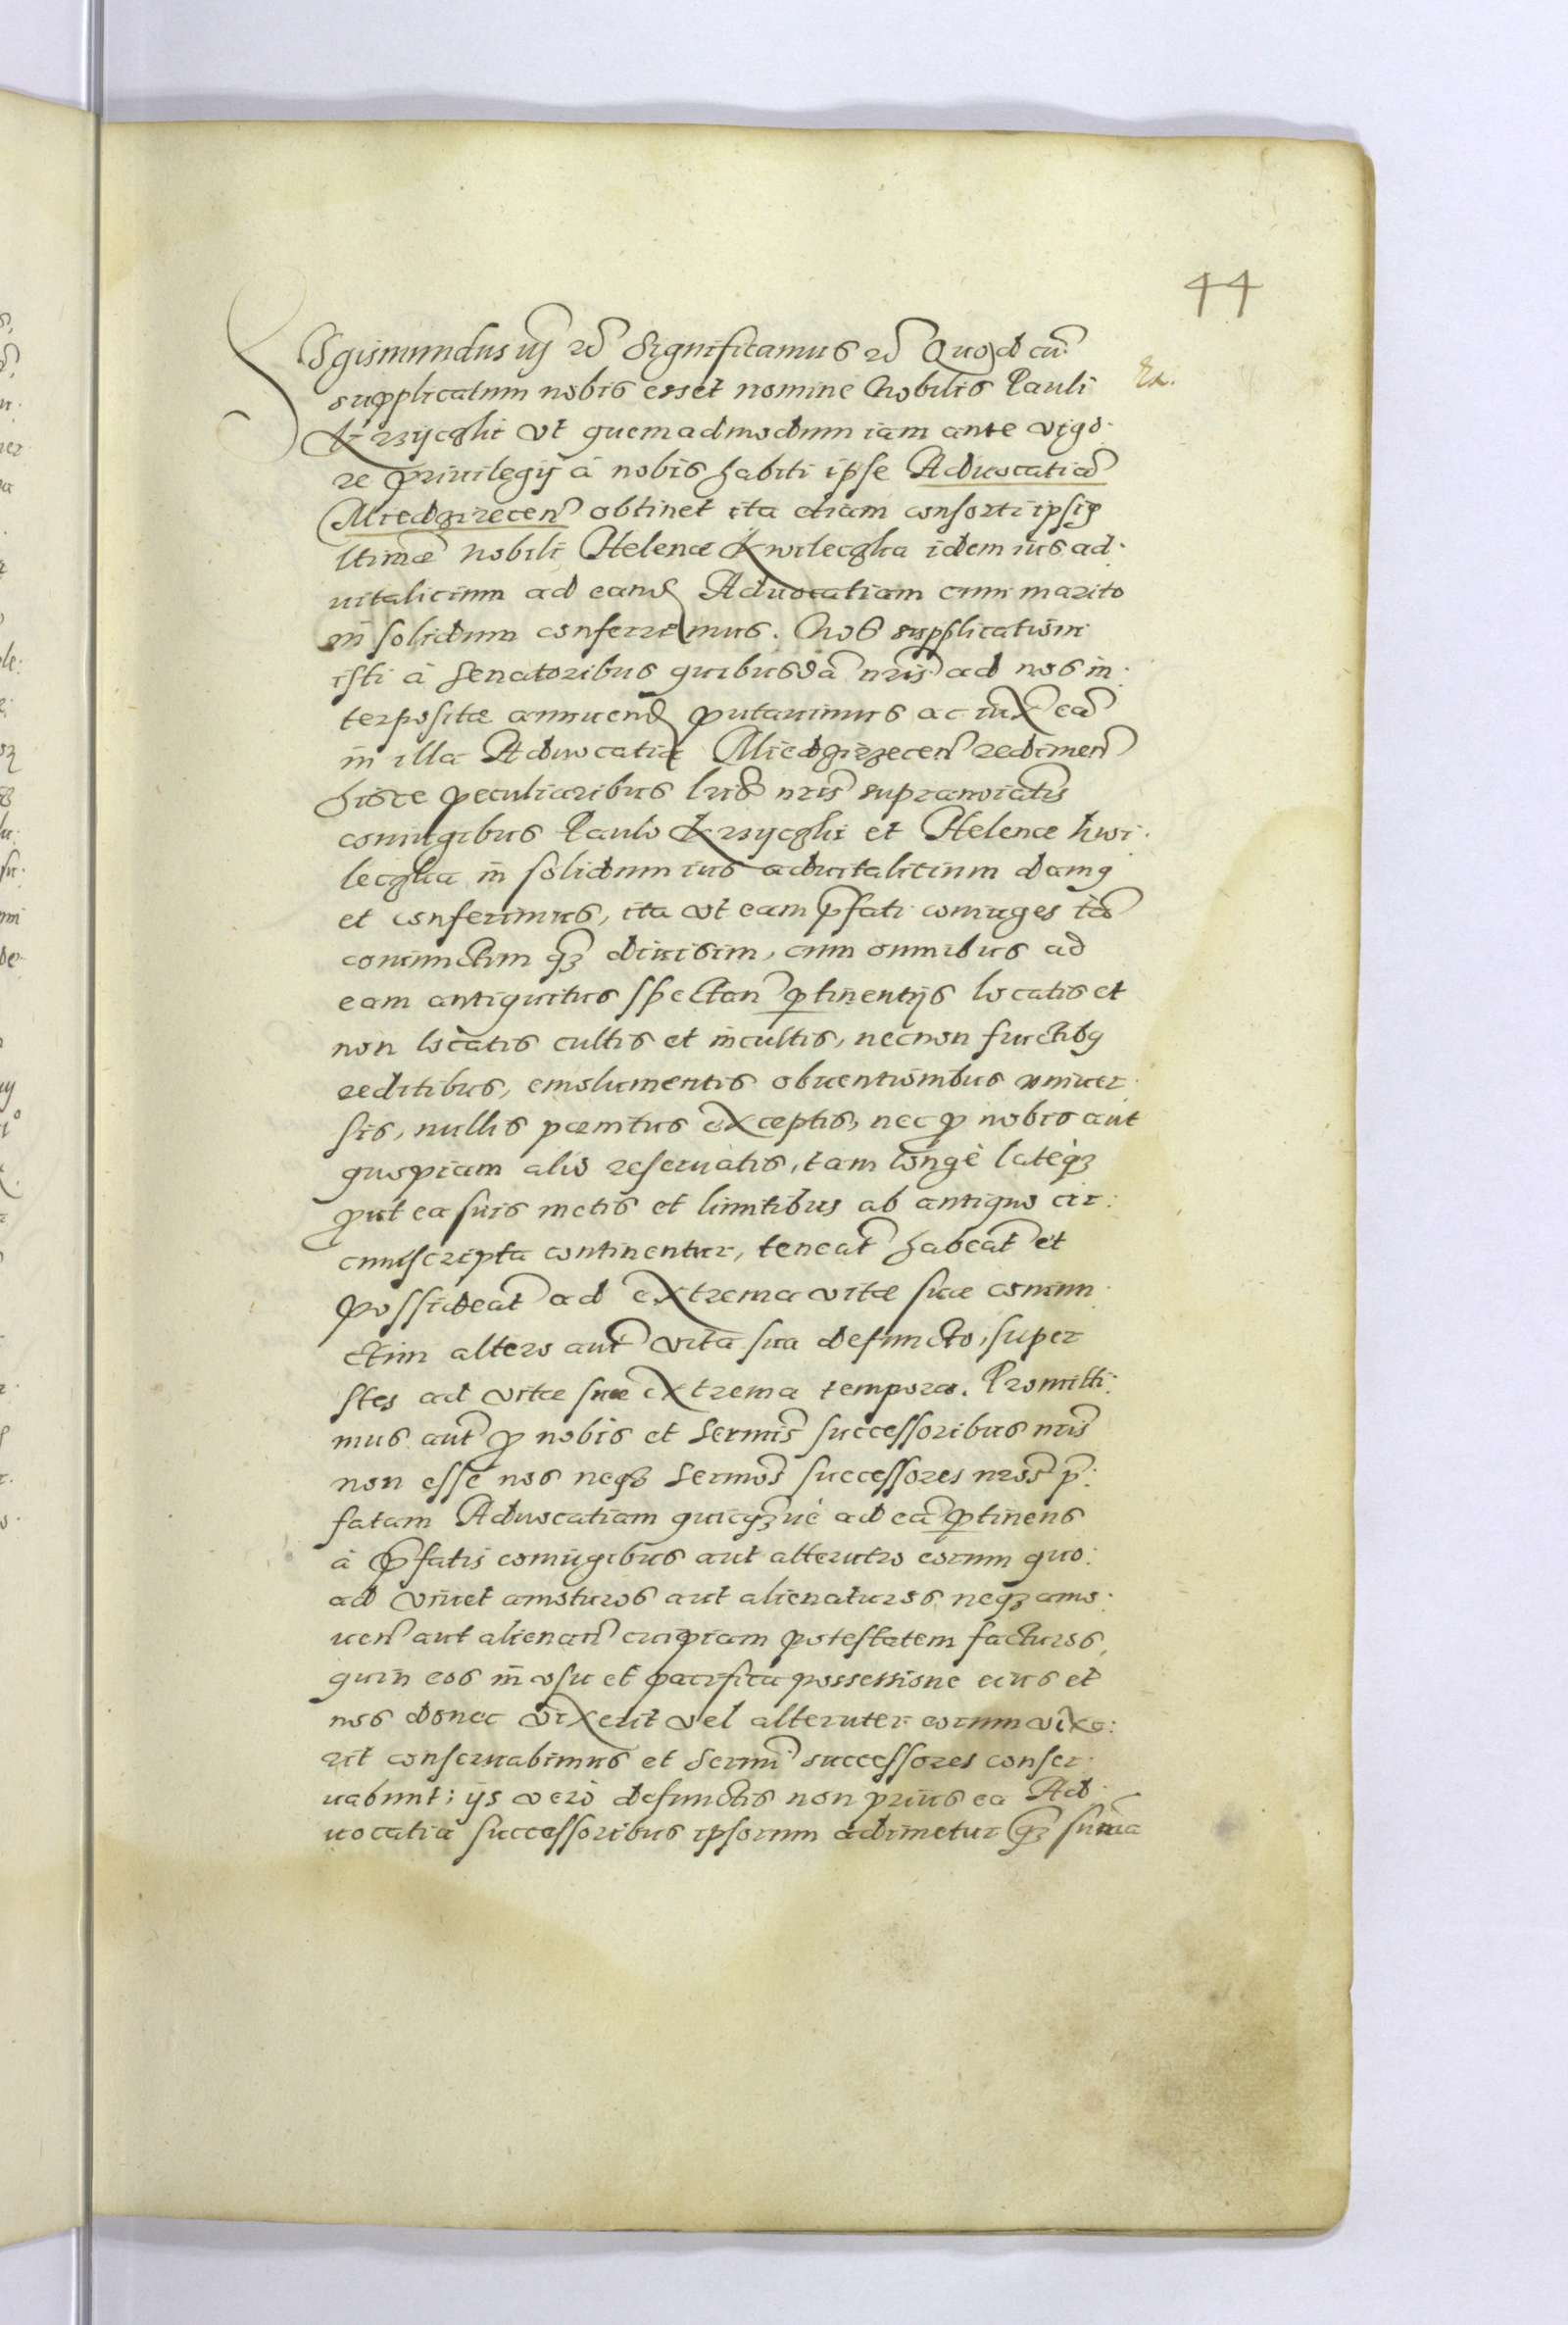 44
Sigismundus iij etc̃ Significamus etc̃ Quod cũ
supplicatum nobis esset nomine Nobilis Pauli
Ex.
Krzyczki vt quemadmodum iam ante vigo-
re priuilegij à nobis habiti ipse Aduocatiã
Miedzirecen̄ obtinet ita etiam consorti ipsiꝰ
ltimæ Nobili Helenæ Kwilecska idem ius ad-
uitalicium ad eand Aduocatiam cum marito
in solidum conferremus. Nos supplicationi
isti à Senatoribus quibusdã nr̃is ad nos in-
terpositæ annuend putauimus ac iux eã
in illa Aduocatia Miedzirzecen̄ redimen̄
hisce peculiaribus lris nr̃is supranoiatis
coniugibus Paulo Krzycski et Helenæ Kwi-
lecska in solidum ius aduitalitium damꝰ
et conferimus, ita vt eam p̄fati coniuges tã
coniunctim qꝫ diuisim, cum omnibus ad
eam antiquitus spectan̄ ꝑtinentijs locatis et
non locatis cultis et incultis, necnon fructibꝰ
reditibus, emolumentis obuentionibus vniuer-
sis, nullis pænitus exceptis, nec ꝓ nobis aut
quopiam alio reseruatis, tam longè lateqꝫ
ꝓut ea suis metis et limitibus ab antiquo cir-
cumscripta continentur, teneat̃ habeat̃ et
possideat̃ ad extrema vitæ suæ coniun-
ctim altero aut̃ vita sua defuncto, super
stes ad vitæ suæ extrema tempora. Promitti-
mus aut̃ ꝓ nobis et Sermis̃ successoribus nr̃is
non esse nos neqꝫ Sermos̃ successores nr̃os p̄-
fatam Aduocatiam quicqꝫuè ad eã ꝑtinens
à p̄fatis coniugibus aut alterutro eorum quo-
ad viuet amoturos aut alienaturos neqꝫ amo-
uen̄ aut alienan̄ cuipiam potestatem facturos,
quin eos in vsu et pacifica possessione eius et
nos donec vixerit vel alteruter eorum vixe-
rit conseruabimus et Sermi successores conser-
uabunt: ijs verò defunctis non prius ea Ad-
uocatia successoribus ipsorum adimetur qꝫ sum̃a